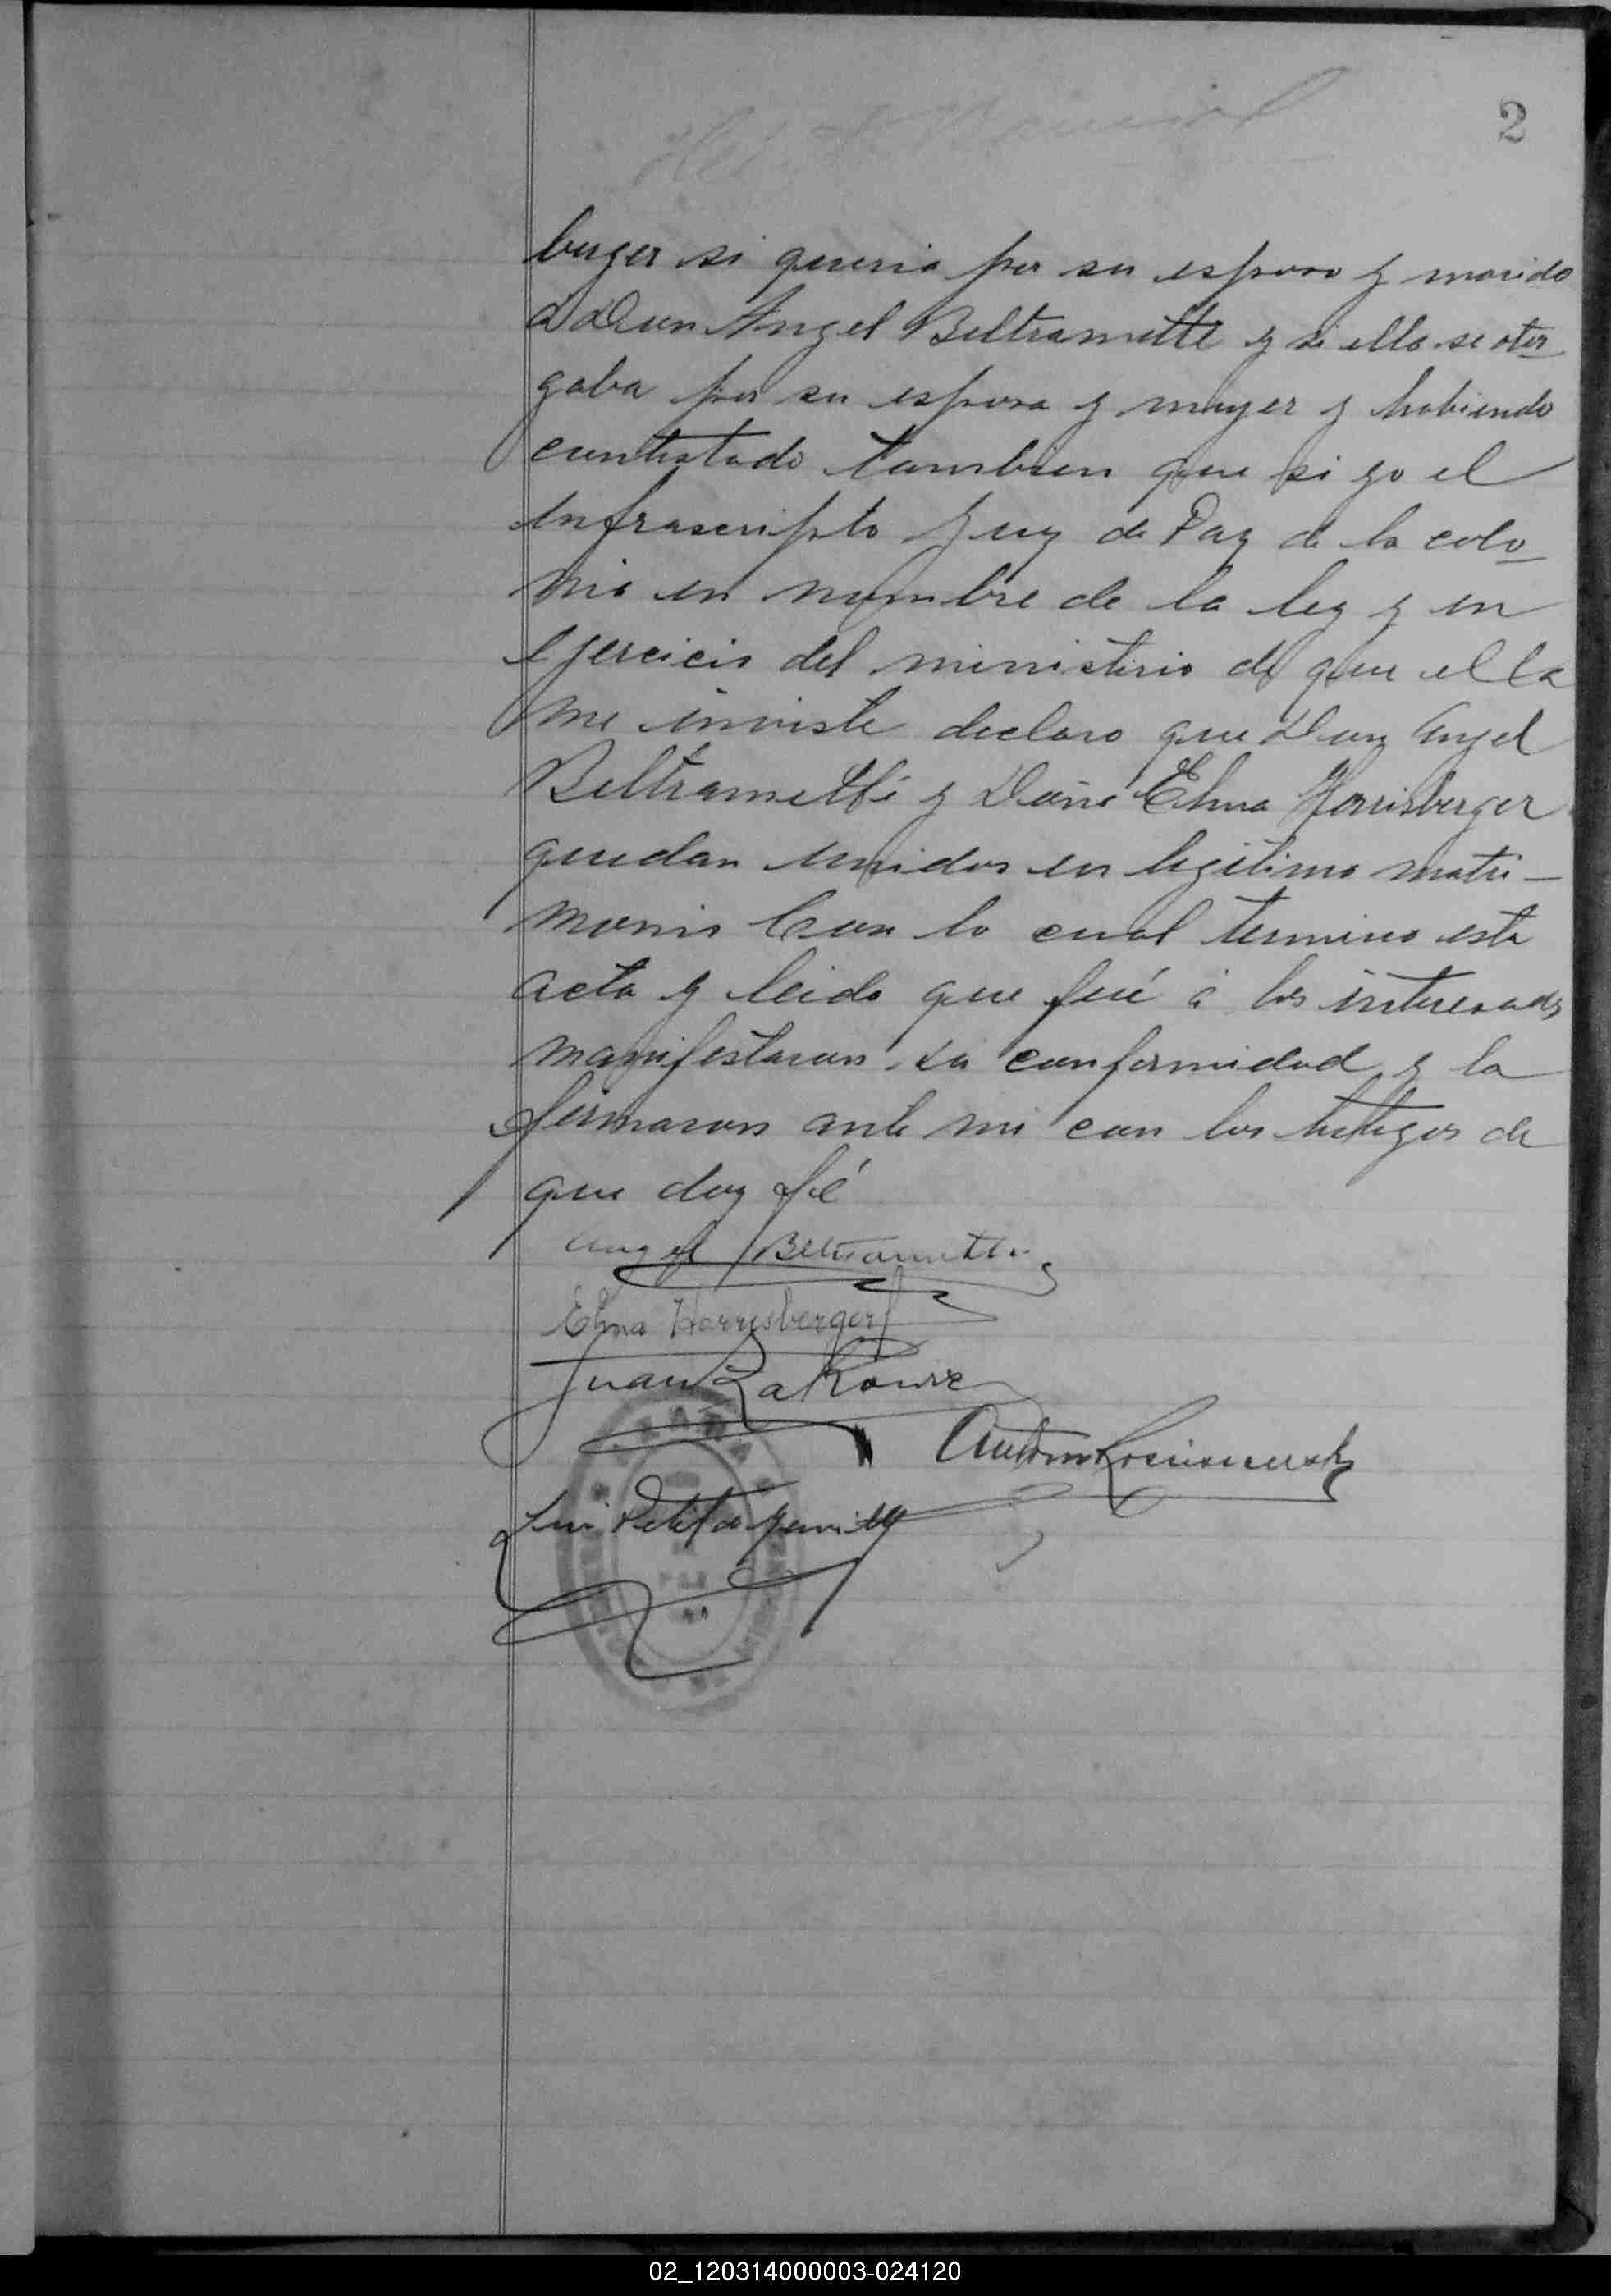 2
burger si queria por su esposo y marido
a Don Angel Beltrametti y si ella se otor
gaba por su esposa y mujer y habiendo
contestado tambien que si yo el
infrascripto Juez de Paz de la colo
nia en nombre de la ley y en
ejercicio del ministerio de que ella
me inviste declaro que Don Angel
Beltrametti y Doña Elma Harrisberger
quedan unidos en legitimo matri-
monio Con lo cual termino esta
acta y leida que fué á los interesados
manifestaron su conformidad y la
firmaron ante mi con los testigos de
que doy fé
Angel Beltrametti
Elma Harrisberger
Juan
Luis Petit de
02_120314000003-024120